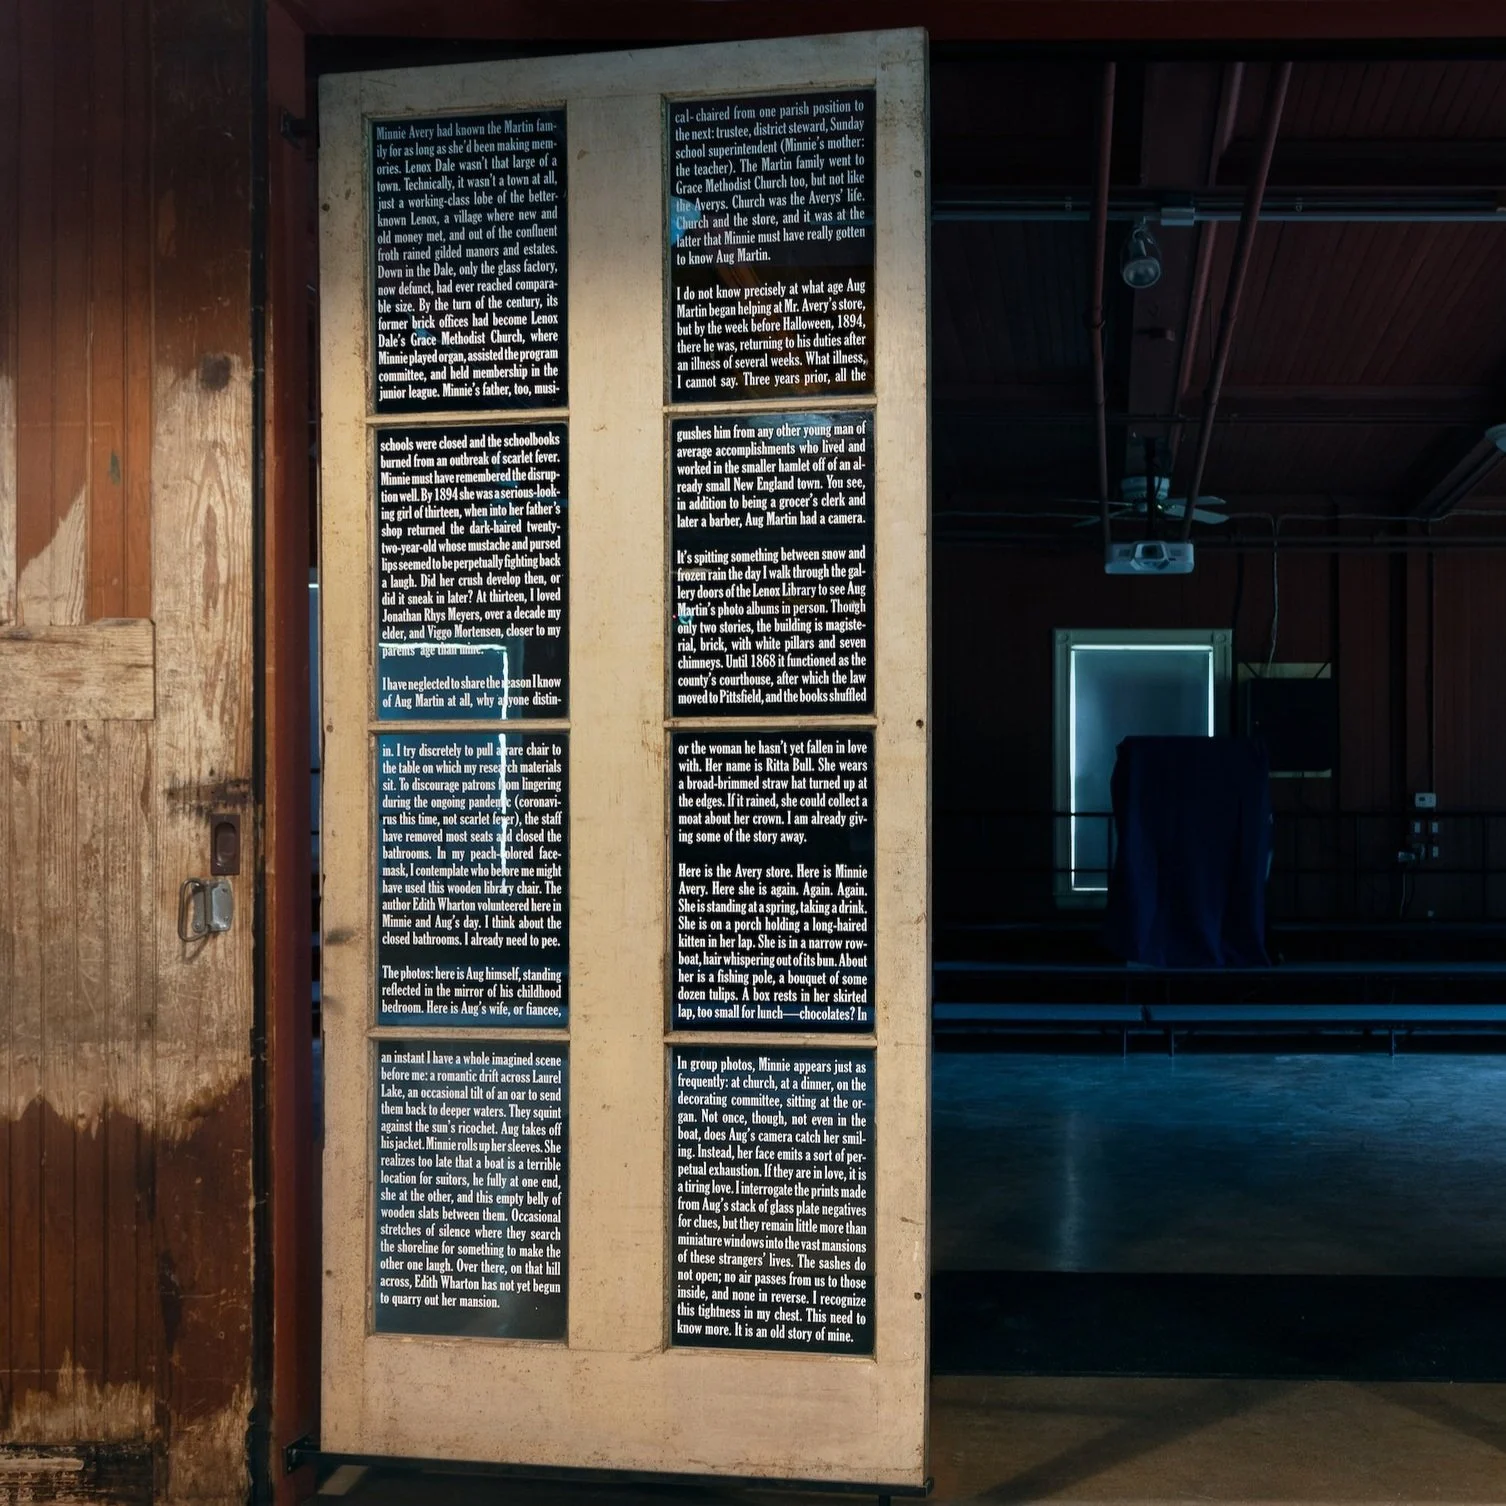 Minnie Avery had known the Martin fam-
ily for as long as she'd been making mem-
ories. Lenox Dale wasn't that large of a
town. Technically, it wasn't a town at all,
just a working-class lobe of the better-
known Lenox, a village where new and
old money met, and out of the confluent
froth rained gilded manors and estates.
Down in the Dale, only the glass factory,
now defunct, had ever reached compara-
ble size. By the turn of the century, its
former brick offices had become Lenox
Dale's Grace Methodist Church, where
Minnie played organ, assisted the program
committee, and held membership in the
junior league. Minnie's father, too, musi-
cal-chaired from one parish position to
the next: trustee, district steward, Sunday
school superintendent (Minnie's mother:
the teacher). The Martin family went to
Grace Methodist Church too, but not like
the Averys. Church was the Averys' life.
Church and the store, and it was at the
latter that Minnie must have really gotten
to know Aug Martin.
I do not know precisely at what age Aug
Martin began helping at Mr. Avery's store,
but by the week before Halloween, 1894,
there he was, returning to his duties after
an illness of several weeks. What illness,
I cannot say. Three years prior, all the
schools were closed and the schoolbooks
burned from an outbreak of scarlet fever.
Minnie must have remembered the disrup-
tion well. By 1894 she was a serious-look-
ing girl of thirteen, when into her father's
shop returned the dark-haired twenty-
two-year-old whose mustache and pursed
lips seemed to be perpetually fighting back
a laugh. Did her crush develop then, or
did it sneak in later? At thirteen, I loved
Jonathan Rhys Meyers, over a decade my
elder, and Viggo Mortensen, closer to my
parents' age than mine.
I have neglected to share the reason I know
of Aug Martin at all, why anyone distin-
gushes him from any other young man of
average accomplishments who lived and
worked in the smaller hamlet off of an al-
ready small New England town. You see,
in addition to being a grocer's clerk and
later a barber, Aug Martin had a camera.
It's spitting something between snow and
frozen rain the day I walk through the gal-
lery doors of the Lenox Library to see Aug
Martin's photo albums in person. Though
only two stories, the building is magiste-
rial, brick, with white pillars and seven
chimneys. Until 1868 it functioned as the
county's courthouse, after which the law
moved to Pittsfield, and the books shuffled
in. I try discretely to pull a rare chair to
the table on which my research materials
sit. To discourage patrons from lingering
during the ongoing pandemic (coronavi-
rus this time, not scarlet fever), the staff
have removed most seats and closed the
bathrooms. In my peach-colored face-
mask, I contemplate who before me might
have used this wooden library chair. The
author Edith Wharton volunteered here in
Minnie and Aug's day. I think about the
closed bathrooms. I already need to pee.
The photos: here is Aug himself, standing
reflected in the mirror of his childhood
bedroom. Here is Aug's wife, or fiancee,
or the woman he hasn't yet fallen in love
with. Her name is Ritta Bull. She wears
a broad-brimmed straw hat turned up at
the edges. If it rained, she could collect a
moat about her crown. I am already giv-
ing some of the story away.
Here is the Avery store. Here is Minnie
Avery. Here she is again. Again. Again.
She is standing at a spring, taking a drink.
She is on a porch holding a long-haired
kitten in her lap. She is in a narrow row-
boat, hair whispering out of its bun. About
her is a fishing pole, a bouquet of some
dozen tulips. A box rests in her skirted
lap, too small for lunch—chocolates? In
an instant I have a whole imagined scene
before me: a romantic drift across Laurel
Lake, an occasional tilt of an oar to send
them back to deeper waters. They squint
against the sun's ricochet. Aug takes off
his jacket. Minnie rolls up her sleeves. She
realizes too late that a boat is a terrible
location for suitors, he fully at one end,
she at the other, and this empty belly of
wooden slats between them. Occasional
stretches of silence where they search
the shoreline for something to make the
other one laugh. Over there, on that hill
across, Edith Wharton has not yet begun
to quarry out her mansion.
In group photos, Minnie appears just as
frequently: at church, at a dinner, on the
decorating committee, sitting at the or-
gan. Not once, though, not even in the
boat, does Aug's camera catch her smil-
ing. Instead, her face emits a sort of per-
petual exhaustion. If they are in love, it is
a tiring love. I interrogate the prints made
from Aug's stack of glass plate negatives
for clues, but they remain little more than
miniature windows into the vast mansions
of these strangers' lives. The sashes do
not open; no air passes from us to those
inside, and none in reverse. I recognize
this tightness in my chest. This need to
know more. It is an old story of mine.